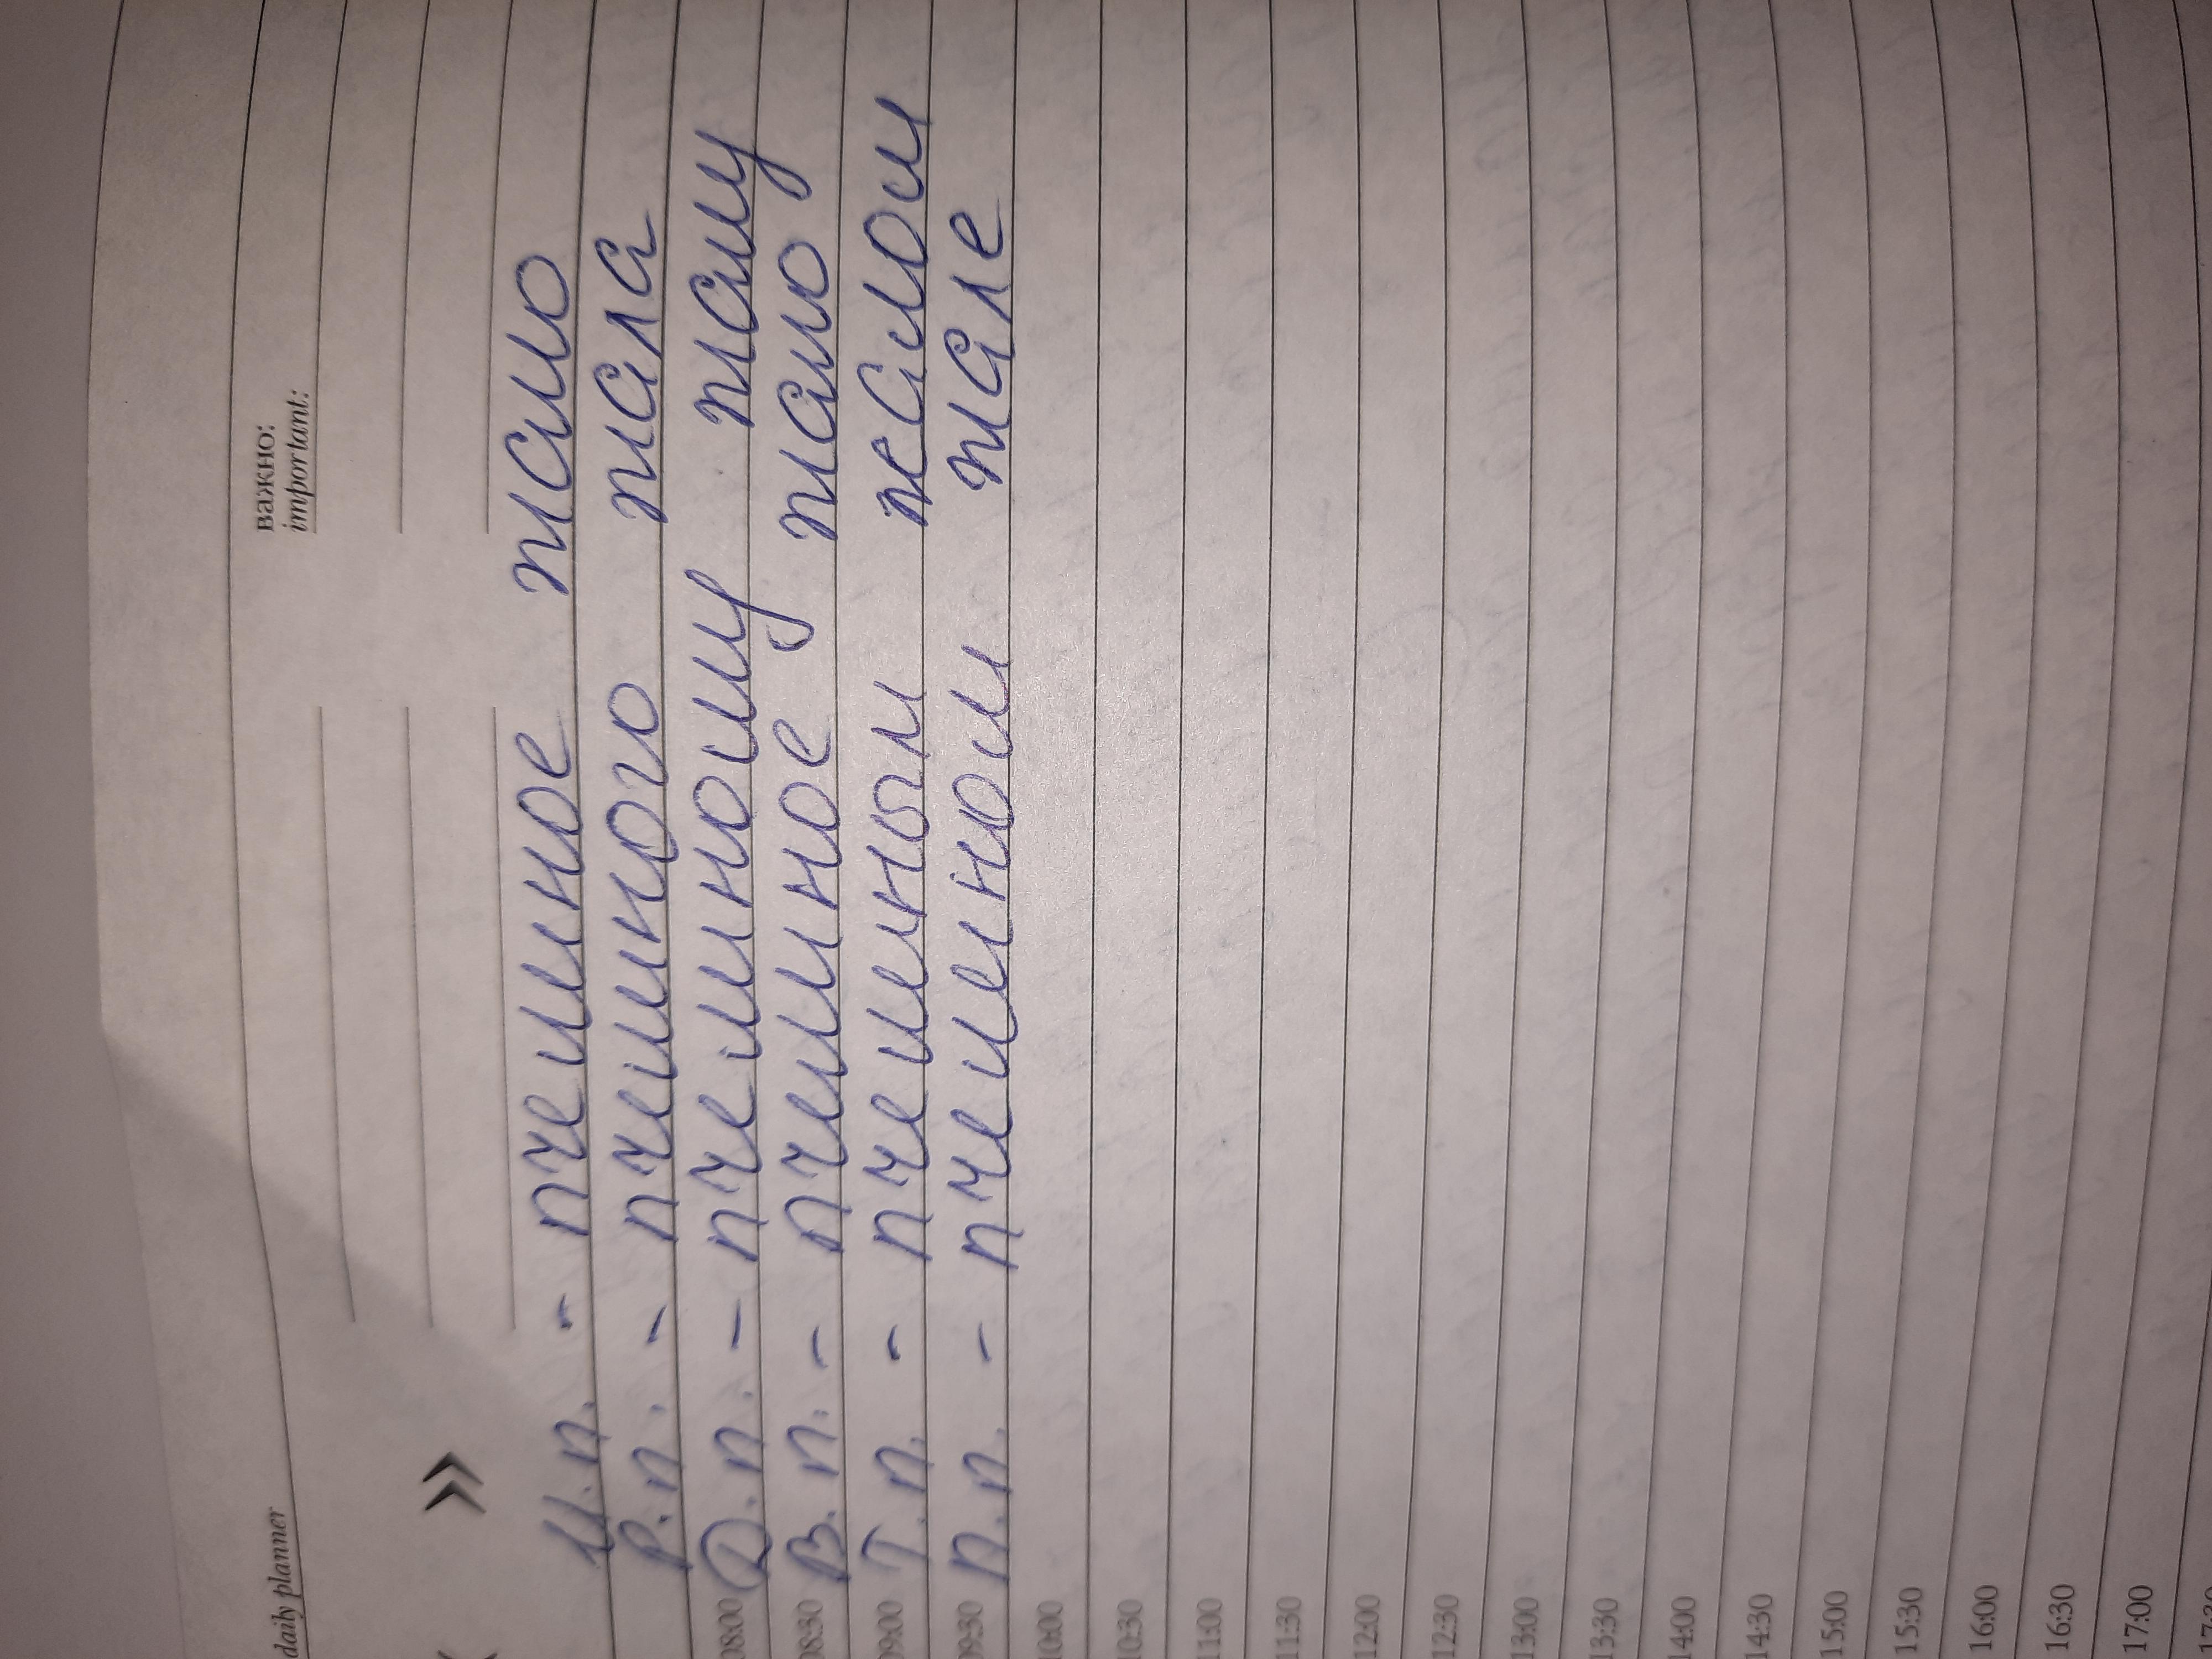 daily planner
важно:
important:
»
И.п. - пчелиное жало
Р.п. - пчелиного жала
08:00 Д.п. - пчелиному жалу
08:30 В.п. - пчелиное жало
09:00 Т.п. - пчелиным жалом
09:30 П.п. - пчелином жале
10:00
10:30
11:00
11:30
12:00
12:30
13:00
13:30
14:00
14:30
15:00
15:30
16:00
16:30
17:00
17:30